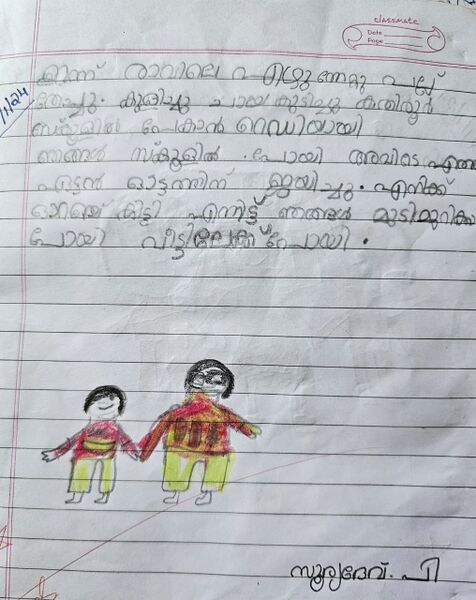 classmate
Date
Page
1/24
ഇന്ന് രാവിലെ റ എഴുന്നേറ്റു പല്ല്
തേച്ചു. കുളിച്ചു ചായ കുടിച്ചു കതിരൂർ
സ്കൂളിൽ പോകാൻ റെഡിയായി
ഞങ്ങൾ സ്കൂളിൽ പോയി അവിടെ എത്തി
ഏട്ടൻ ഓട്ടത്തിന് ജയിച്ചു. എനിക്ക്
കിട്ടി എന്നിട്ട് ഞങ്ങൾ മുടിമുറിക്ക
പോയി വീട്ടിലേക്ക് പോയി.
സൂര്യദേവ്. പി